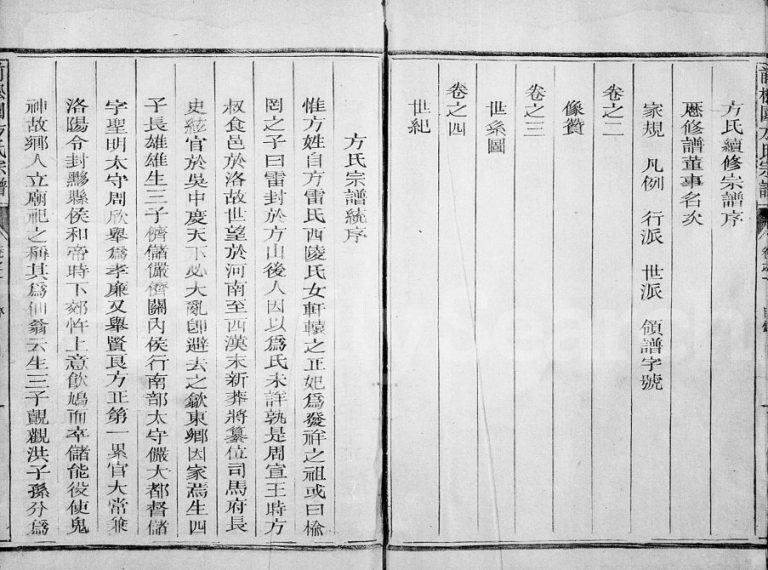 方氏續修宗譜序
歷修譜董事名次
家規 凡例 行派 世派 領譜字號
卷之二
像贊
卷之三
世系圖
卷之四
世紀
方氏宗譜統序
惟方姓自方雷氏西陵氏女軒轅之正妃爲發祥之祖或曰榆
罔之子曰雷封於方山後人因以爲氏未詳孰是周宣王時方
叔食邑於洛故世望於河南至西漢末新莽將纂位司馬府長
史紘官於吳中慶天下必大亂卽避去之歙東鄉因家焉生四
子長雄雄生三子儕儲儼儕關內侯行南部太守儼大都督儲
字聖明太守周欣舉爲孝廉又舉賢良方正第一累官大常兼
洛陽令封黟縣侯和帝時下郊忤上意飲鴆而卒儲能役使鬼
神故鄉人立廟祀之稱其爲仙翁云生三子覬觀洪子孫分爲
方氏宗譜